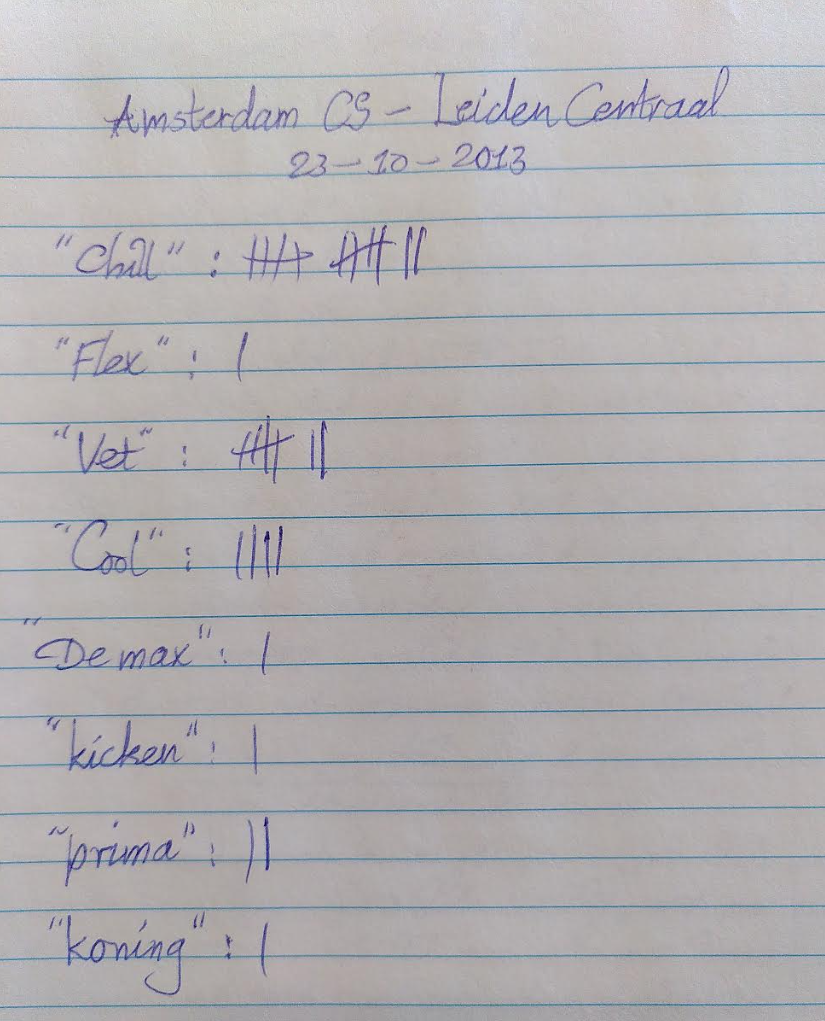 Amsterdam CS - Leiden Centraal
23-10-2013
"Chill" : |||| |||| ||
"Flex" : |
"Vet" : |||| ||
"Cool" : ||||
"De max" : |
"kicken" : |
"prima" : ||
"koning" : |